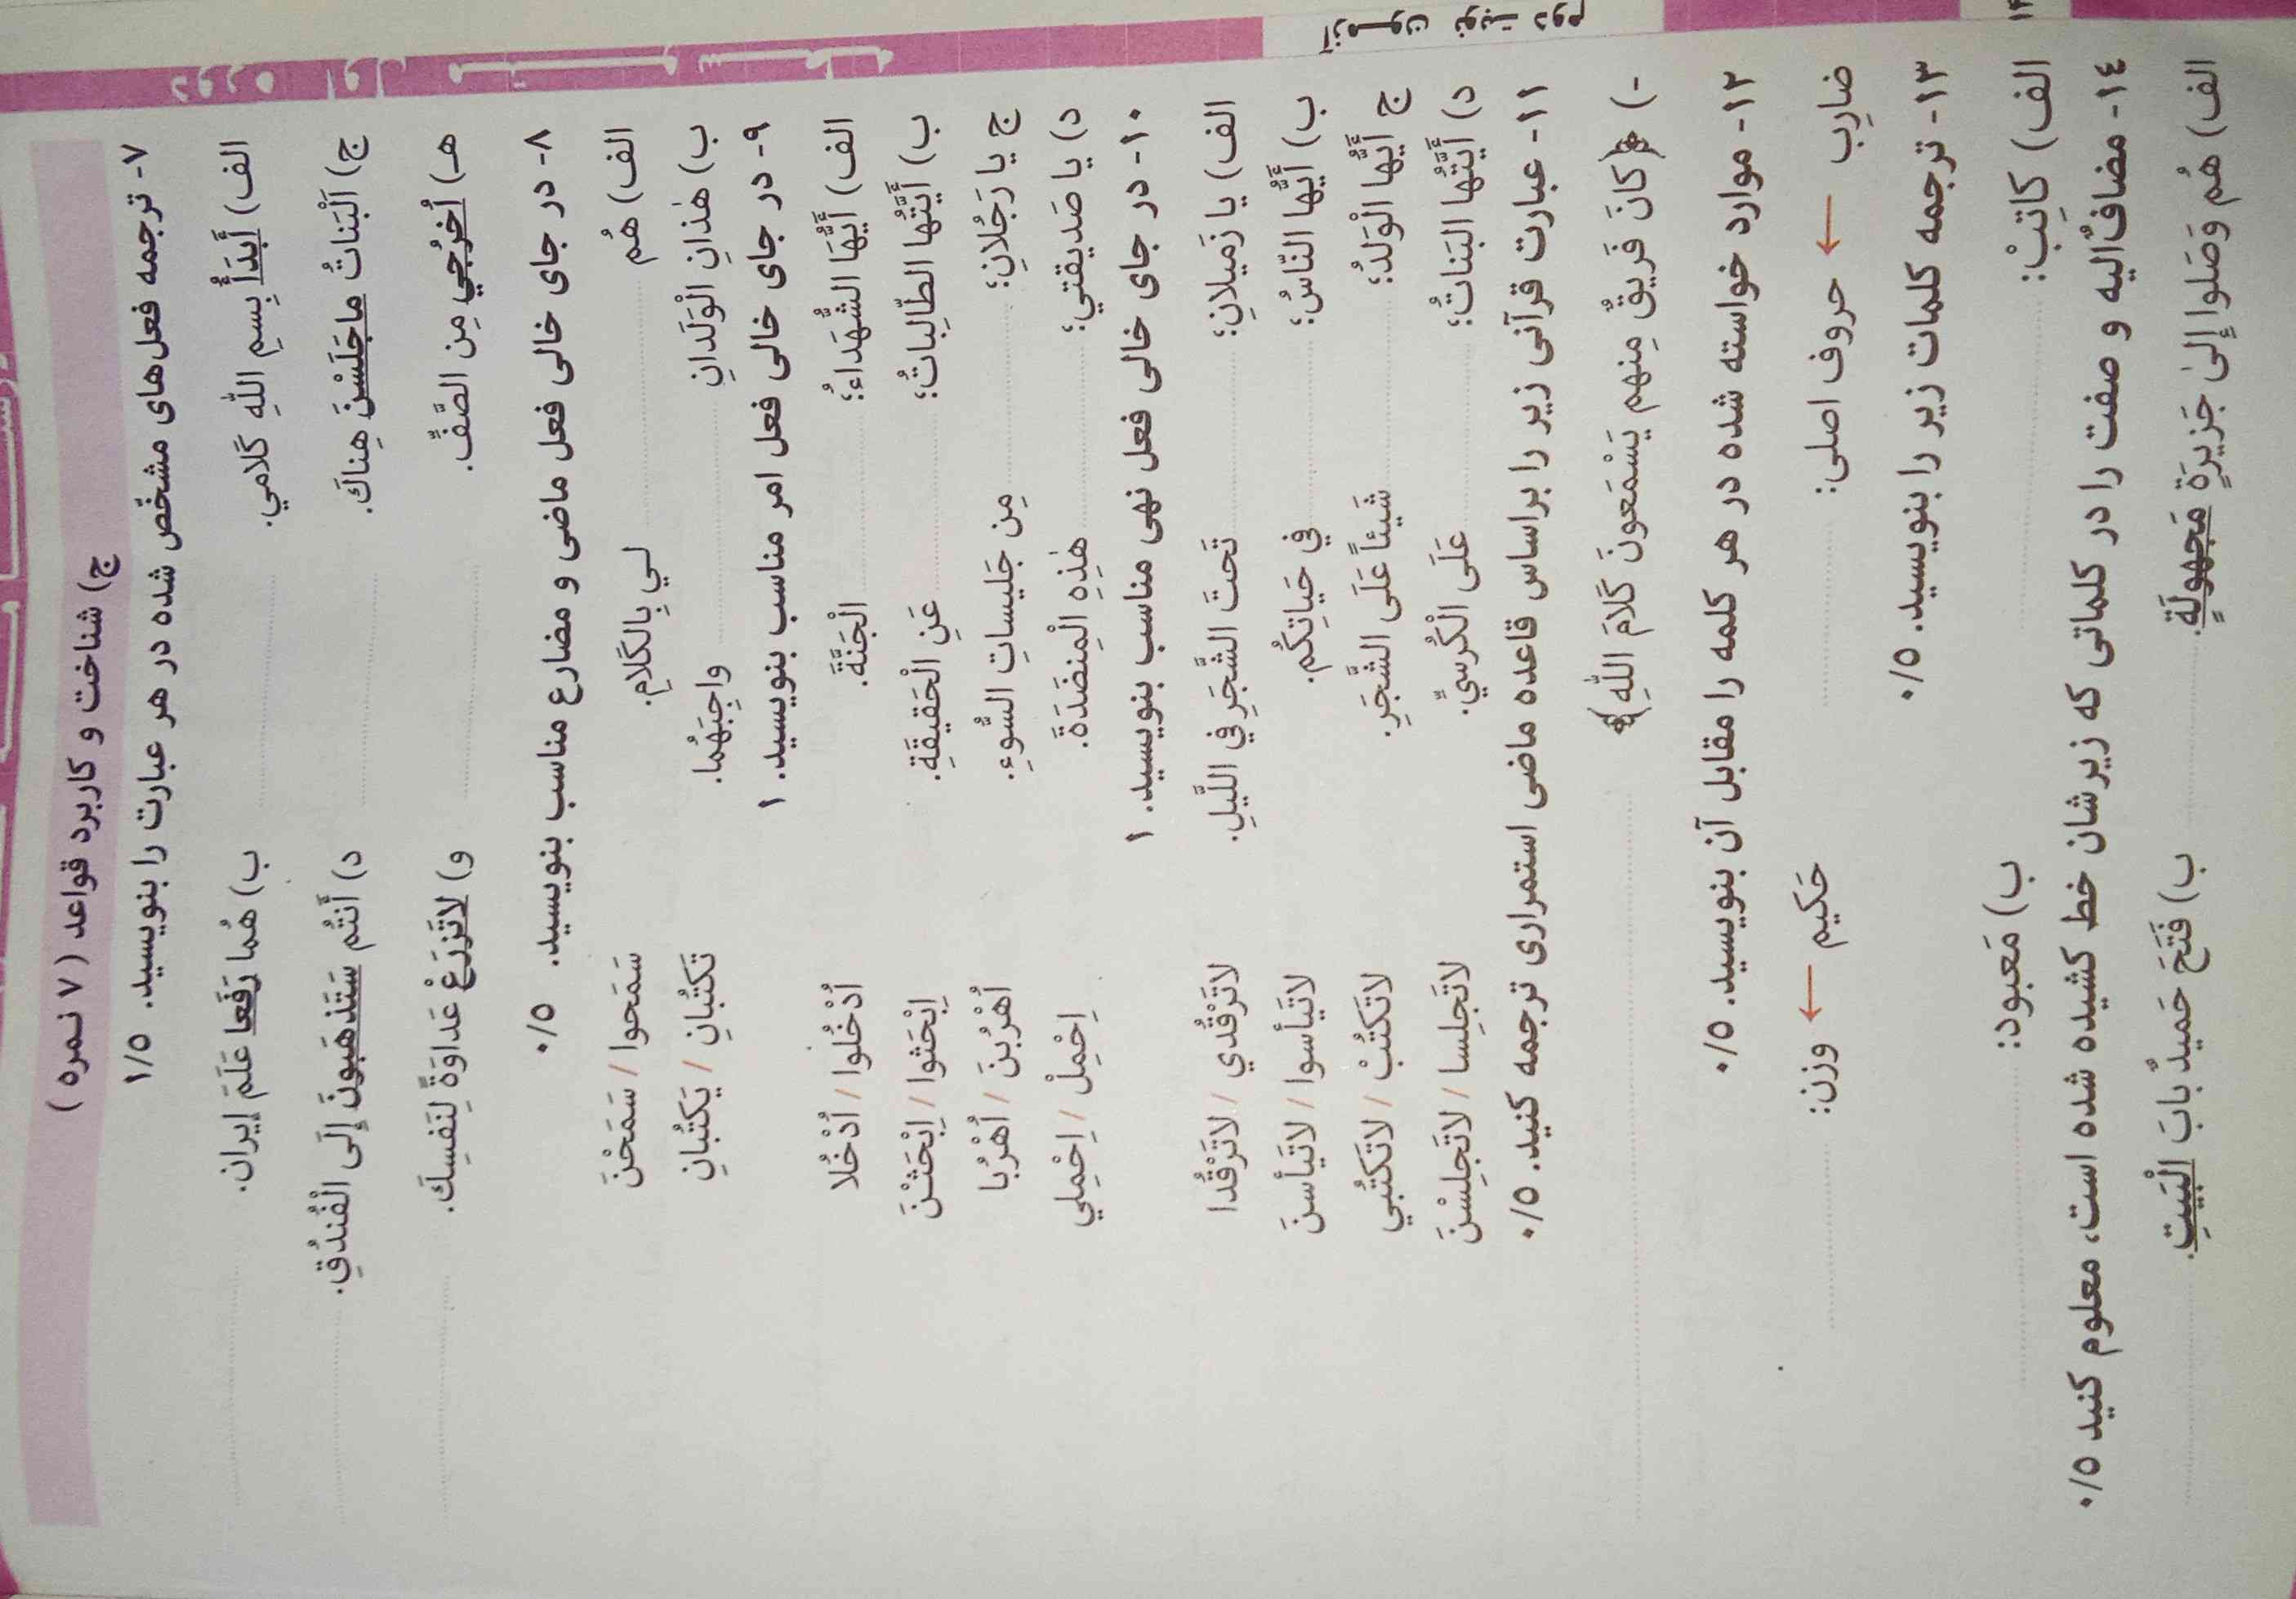 دوره اول متوسطه
آزمون نوبت دوم
ج) شناخت و کاربرد قواعد (۷ نمره)
۷- ترجمه فعل‌های مشخّص شده در هر عبارت را بنویسید. ۱/۵
الف) أَبدَأُ بِسمِ اللهِ كَلامي. ب) هُما رَفَعا عَلَمَ إيران.
ج) اَلْبَناتُ ماجَلَسْنَ هِناكَ. د) أَنتُم سَتَذهَبونَ إلَى الْفُندُقِ.
هـ) اُخرُجي مِن الصَّفِّ. و) لاتَزرَعْ عَداوَةً لِنَفسِكَ.
۸- در جای خالی فعل ماضی و مضارع مناسب بنویسید. ۰/۵
الف) هُم لي بِالكَلامِ. سَمَحوا / سَمَحْنَ
ب) هٰذانِ الْوَلَدانِ واجِبَهُما. تَكتُبانِ / يَكتُبانِ
۹- در جای خالی فعل امر مناسب بنویسید. ۱
الف) أَيُّهَا الشُّهَداءُ؛ الْجَنَّةَ. اُدْخُلوا / اُدْخُلا
ب) أَيَّتُهَا الطّالِباتُ؛ عَنِ الْحَقيقَةِ. اِبْحَثوا / اِبْحَثْنَ
ج يا رَجُلانِ؛ مِن جَليساتِ السُّوءِ. اُهْرُبنَ / اُهْرُبا
د) يا صَديقتي؛ هٰذِهِ الْمِنضَدَةَ. اِحْمِلْ / اِحْمِلي
۱۰- در جای خالی فعل نهی مناسب بنویسید. ۱
الف) يا زَميلانِ؛ تَحتَ الشَّجَرِ في اللَّيلِ. لاتَرْقُدي / لاتَرْقُدا
ب) أَيُّهَا النّاسُ؛ في حَياتِكُم. لاتَيأسوا / لاتَيأسنَ
ج أَيُّهَا الْوَلَدُ؛ شَيئاً عَلَى الشَّجَرِ. لاتَكتُبْ / لاتَكتُبي
د) أَيَّتُهَا البَناتُ؛ عَلَى الْكُرسيِّ. لاتَجلِسا / لاتَجلِسْنَ
۱۱- عبارت قرآنی زیر را براساس قاعده ماضی استمراری ترجمه کنید. ۰/۵
-) ﴿كانَ فَريقٌ مِنهم يَسْمَعونَ كَلامَ اللهِ﴾
۱۲- موارد خواسته شده در هر کلمه را مقابل آن بنویسید. ۰/۵
ضارِب ← حروف اصلی: حَكيم ← وزن:
۱۳- ترجمه کلمات زیر را بنویسید. ۰/۵
الف) كاتِبْ: ب) مَعبود:
۱۴- مضافٌ‌الیه و صفت را در کلماتی که زیرشان خط کشیده شده است، معلوم کنید ۰/۵
الف) هُم وَصَلوا إلىٰ جَزيرَةٍ مَجهولَةٍ. ب) فَتَحَ حَميدٌ بابَ الْبَيتِ.